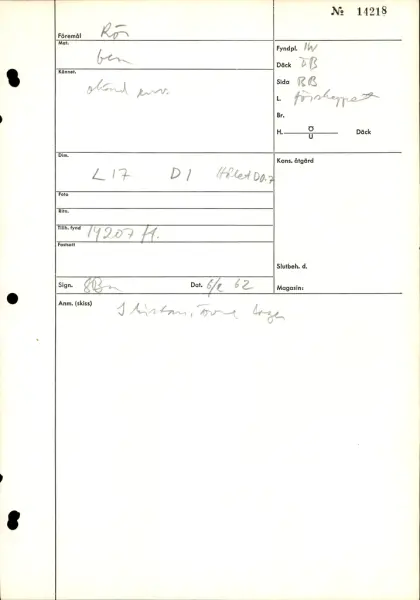 № 14218
Föremål Rör
Mat. ben
Känner. okänd anv.
Fyndpl. IW
Däck ÖB
Sida BB
L. förskeppet
Br.
H. Ö U Däck
Dim. L 17 D 1 Hålet D 0.7
Kons. åtgärd
Foto
Ritn.
Tillh. fynd 14207 ff.
Format
Slutbeh. d.
Sign. Dat. 6/2 62
Magasin:
Anm. (skiss) I kistan, övre lager